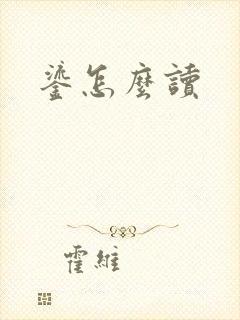 鋈怎麼讀
霍維